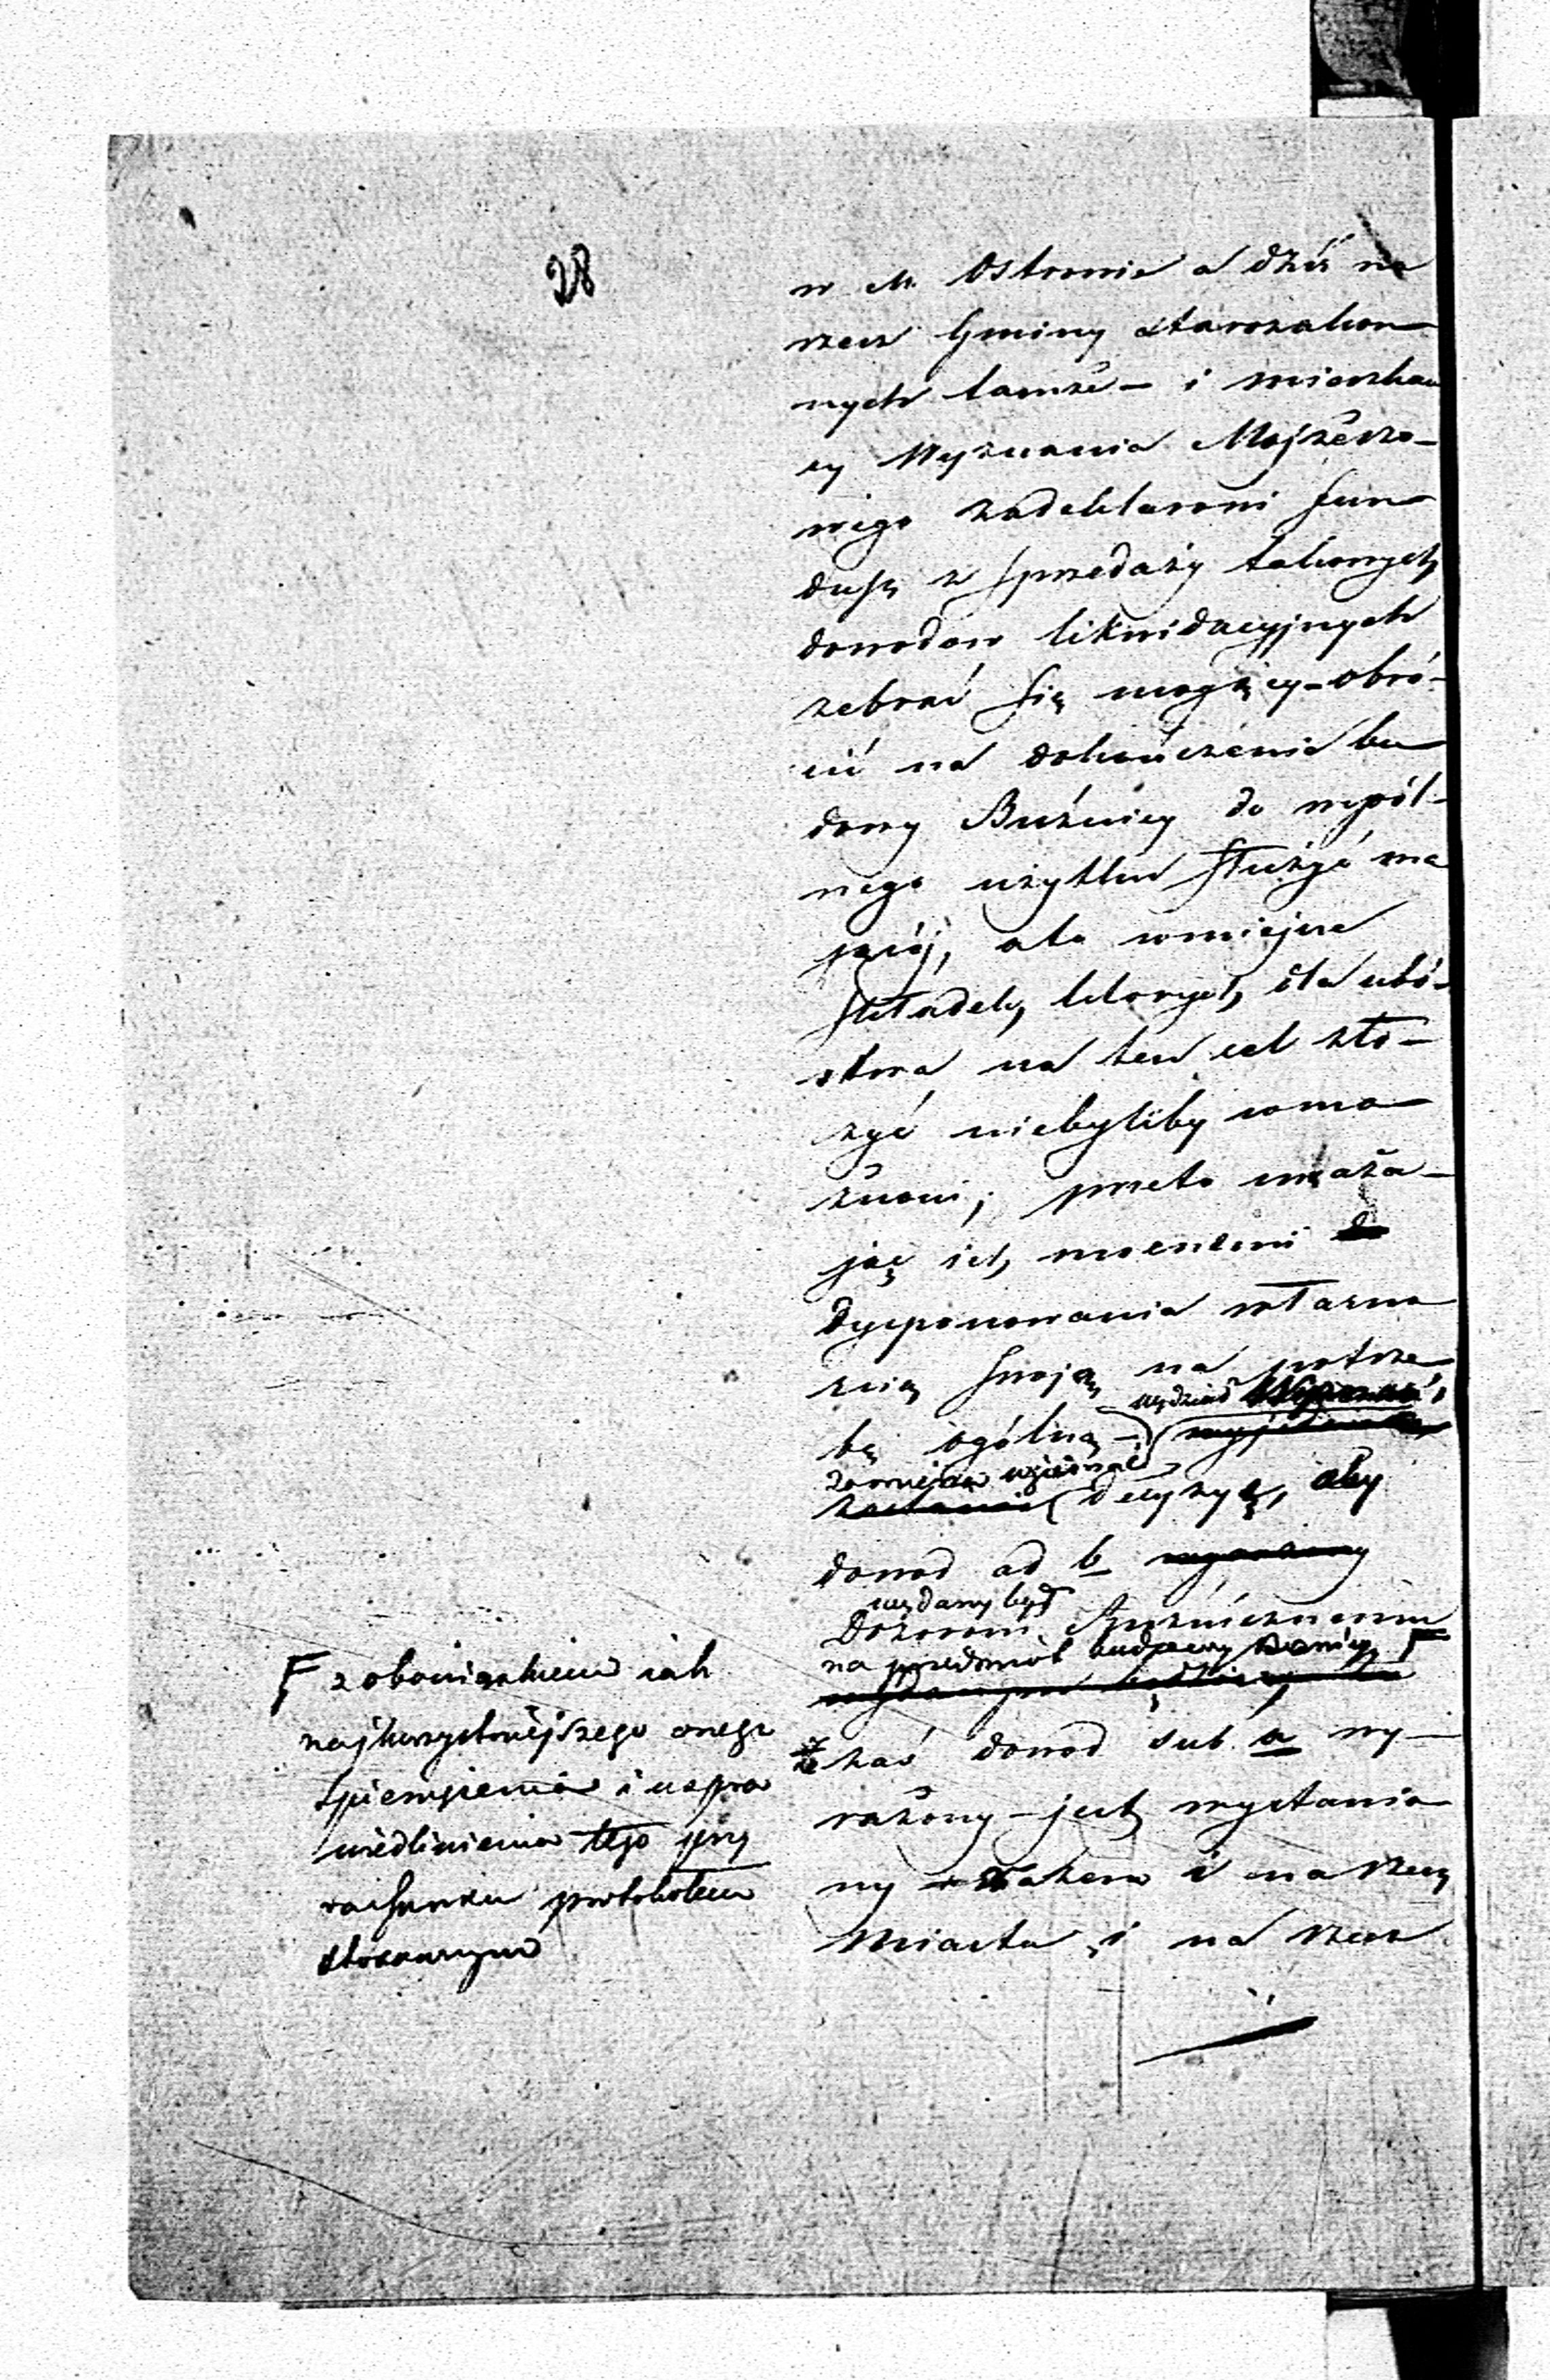 28
w M. Ostrowie a dziś na
rzecz Gminy starozakon-
nych tamże - i mieszkań
cy Wyznania Mojżeszo-
wego zadeklarowali fun-
dusz z sprzedaży takowych
dowodow likwidacyjnych
zebrać się mogący - obró-
cić na dokończenie bu-
dowy Buźnicy do wspól-
nego użytku służyć ma
jącej, a to w miejsce
składek, których, dla ubó-
stwa na ten cel zło-
żyć niebyliby w mo-
żności; przeto uważa-
jąc ich mocnemi
dysponowania własno-
ścią swoją na potrze-
bę ogólną -
decyzyę, aby
dowod ad b
wydany był
Dozorowi Bużnicznemu
na przedmiot budowy Bożnicy F
zaś dowod sub a wy-
rażony - jest wystawio
ny i na rzecz
Miasta i na rzecz
F z obowiązkiem iak
najkorzystniejszego onego
spieniężenia i uspra
wiedliwienia tego przy
rachunku protokołem
stosownym